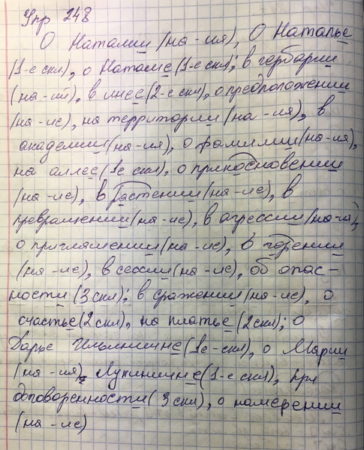 Упр 248
О Наталии (на -ия), О Наталье
(1-е скл), о Наташе (1-е скл; в гербарии
(на -ий), в лесе (2-е скл), о предположении
(на -ие), на территории (на -ия), в
академии (на -ия), о фамилии (на -ия),
на аллее (1е скл), о прикосновении
(на -ие), в растении (на -ие), в
превращении (на -ие), в агрессии (на-ия),
о приглашении (на -ие), о горении
(на -ие), в сессии (на -ие), об опас-
ности (3 скл); в сражении (на -ие), о
счастье (2 скл), на платье (2 скл); о
Дарье Ильиничне (1е-скл), о Марии
(на -ия) Лукиничне (1-е скл), при
договоренности (3 скл), о намерении
(на -ие)